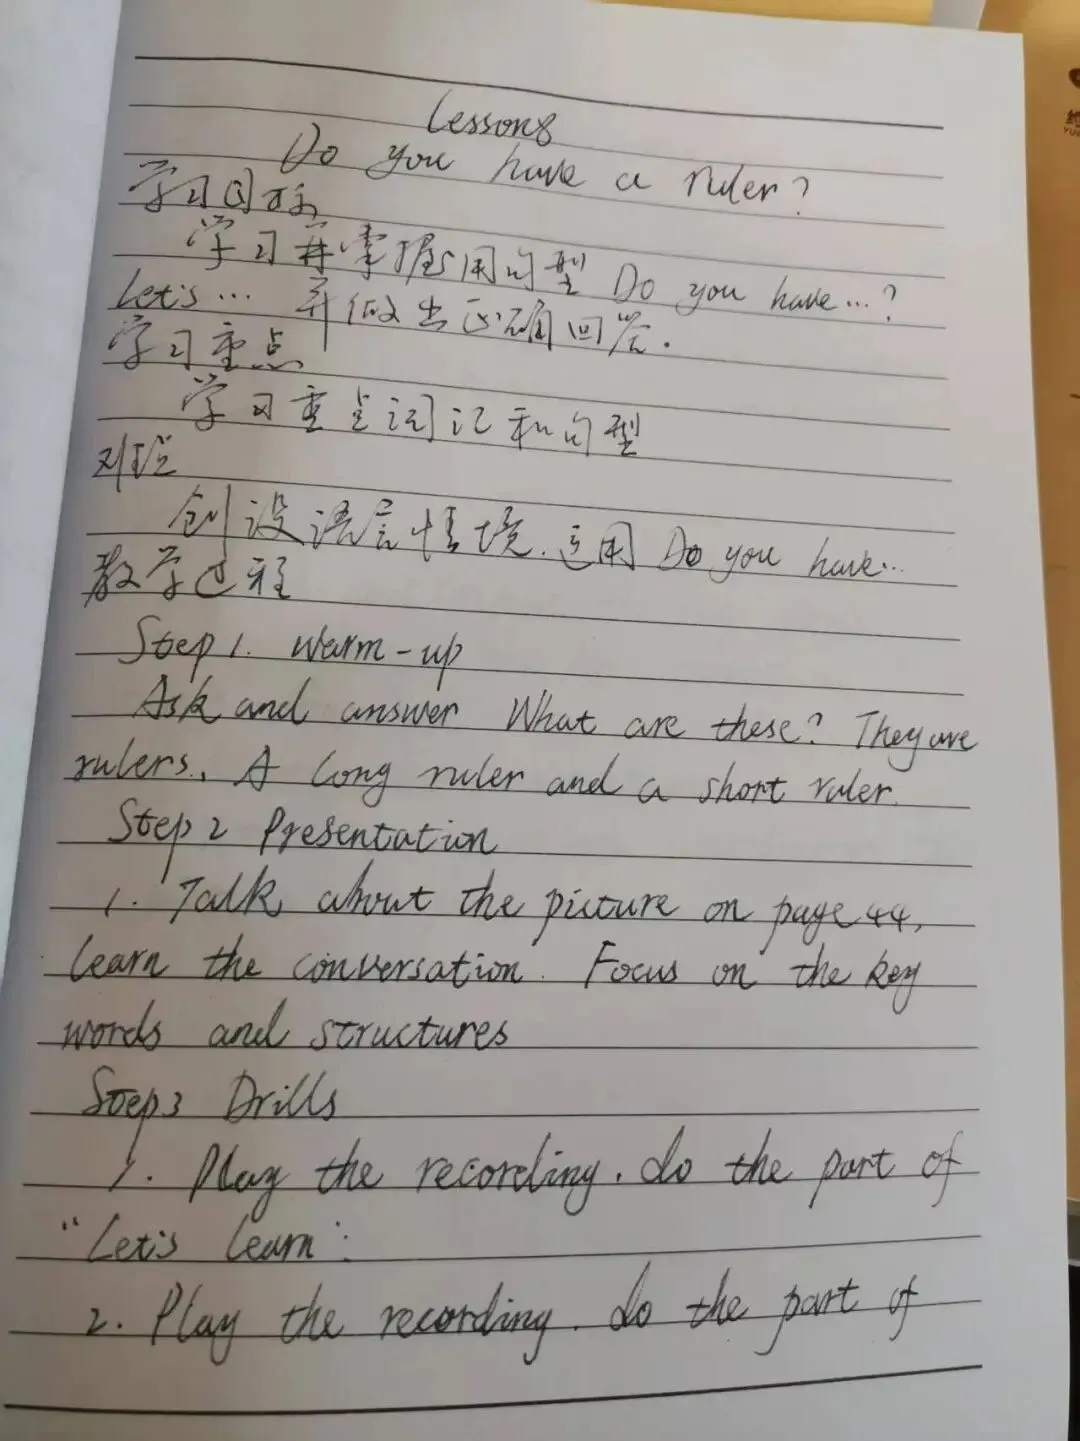 Lesson8
Do you have a ruler?
学习目标
学习并掌握用句型 Do you have...?
Let's... 并做出正确回答.
学习重点
学习重点词汇和句型
对难
创设语层情境.运用 Do you have...
教学过程
Step 1. Warm-up
Ask and answer What are these? They are
rulers. A long ruler and a short ruler.
Step 2 Presentation
1. Talk about the picture on page 44,
learn the conversation. Focus on the key
words and structures
Step3 Drills
1. Play the recording. do the part of
"Let's learn".
2. Play the recording. do the part of